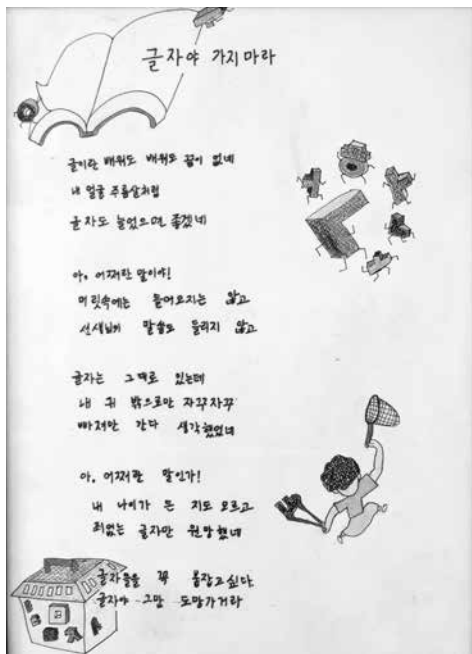 글자야 가지마라
글이란 배워도 배워도 끝이 없네
내 얼굴 주름살처럼
글자도 늘었으면 좋겠네
아, 어쩌란 말이야!
머릿속에는 들어오지는 않고
선생님의 말씀도 들리지 않고
글자는 그대로 있는데
내 귀 밖으로만 자꾸자꾸
빠져만 간다 생각했었네
아, 어쩌란 말인가!
내 나이가 든 지도 모르고
죄없는 글자만 원망했네
글자들을 꼭 붙잡고싶다
글자야 그만 도망가거라